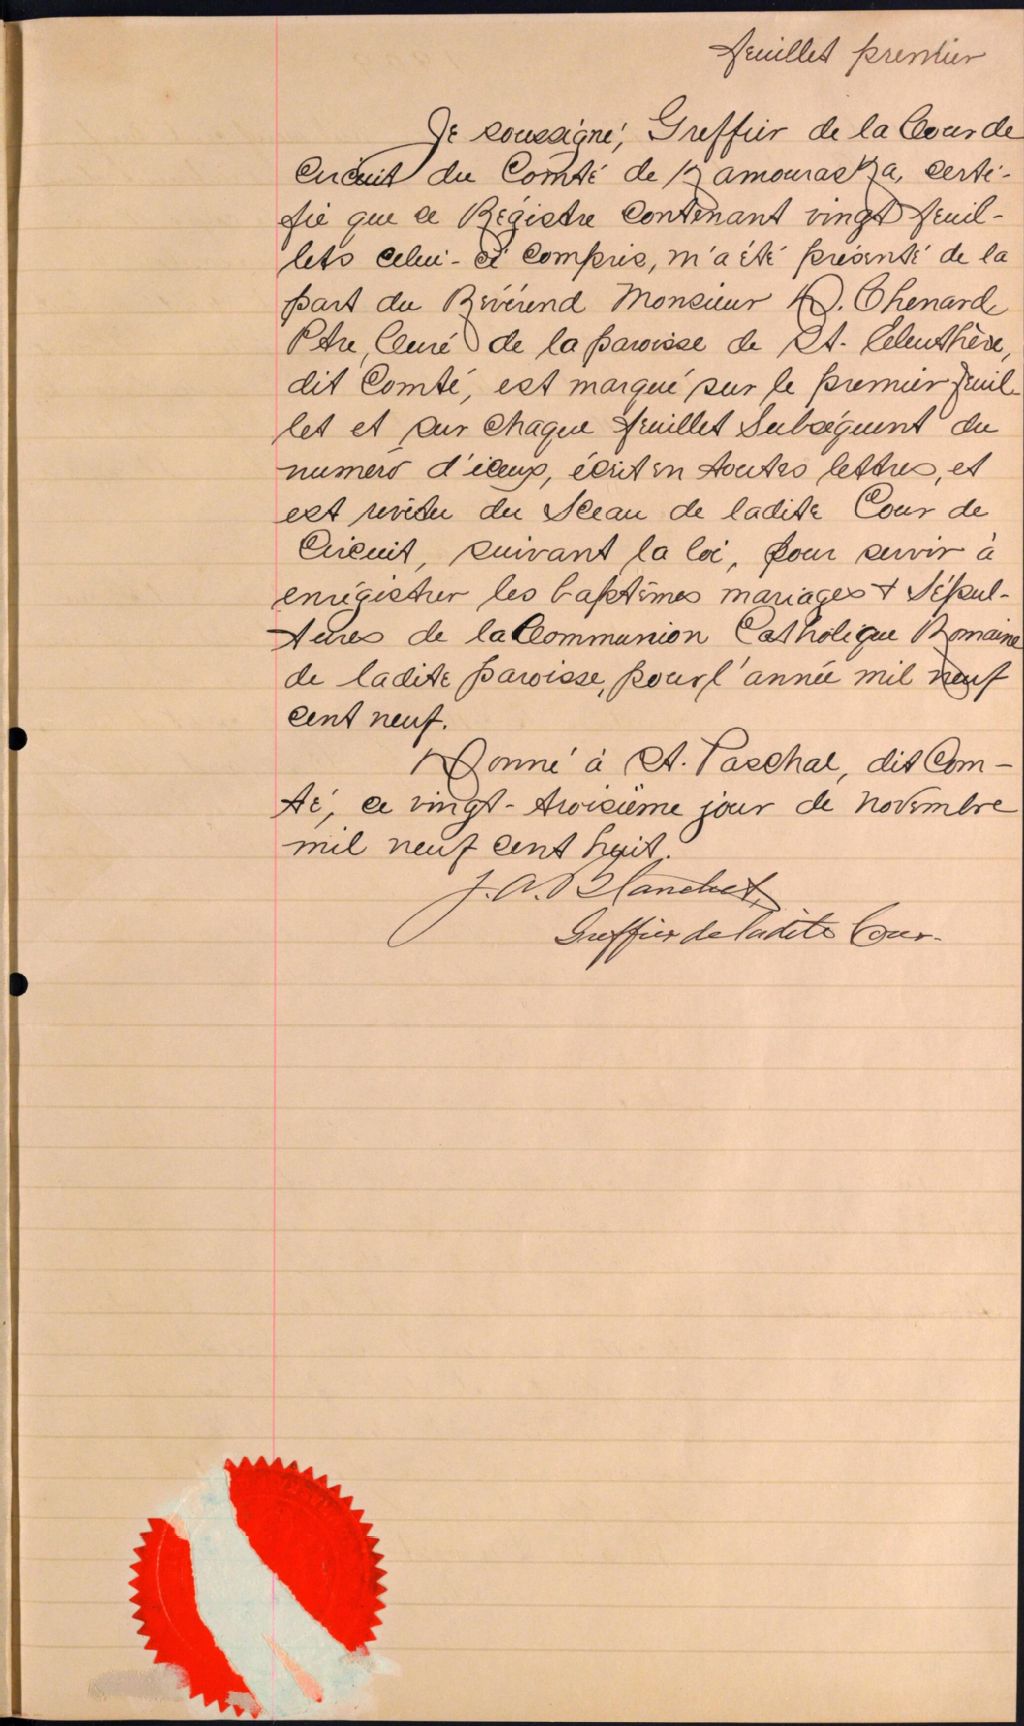 feuillet premier
Je soussigné, Greffier de la Cour de
Circuit du Comté de Kamouraska, certi-
fie que ce Régistre contenant vingt feuil-
lets celui-ci compris, m'a été présenté de la
part du Révérend Monsieur D. Chenard
Ptre, Curé de la paroisse de St. Eleuthère,
dit Comté, est marqué sur le premier feuil
let et sur chaque feuillet Subséquent du
numéro d'iceux, écrit en toutes lettres, et
est revêtu du Sceau de ladite Cour de
Circuit, suivant la loi, pour servir à
enrégistrer les baptêmes mariages & Sépul-
tures de la Communion Catholique Romaine
de ladite paroisse, pour l'année mil neuf
cent neuf.
Donné à St. Paschal, dit Com-
té, ce vingt-troisième jour de novembre
mil neuf cent huit.
J. A. Blanchet,
Greffier de ladite Cour.